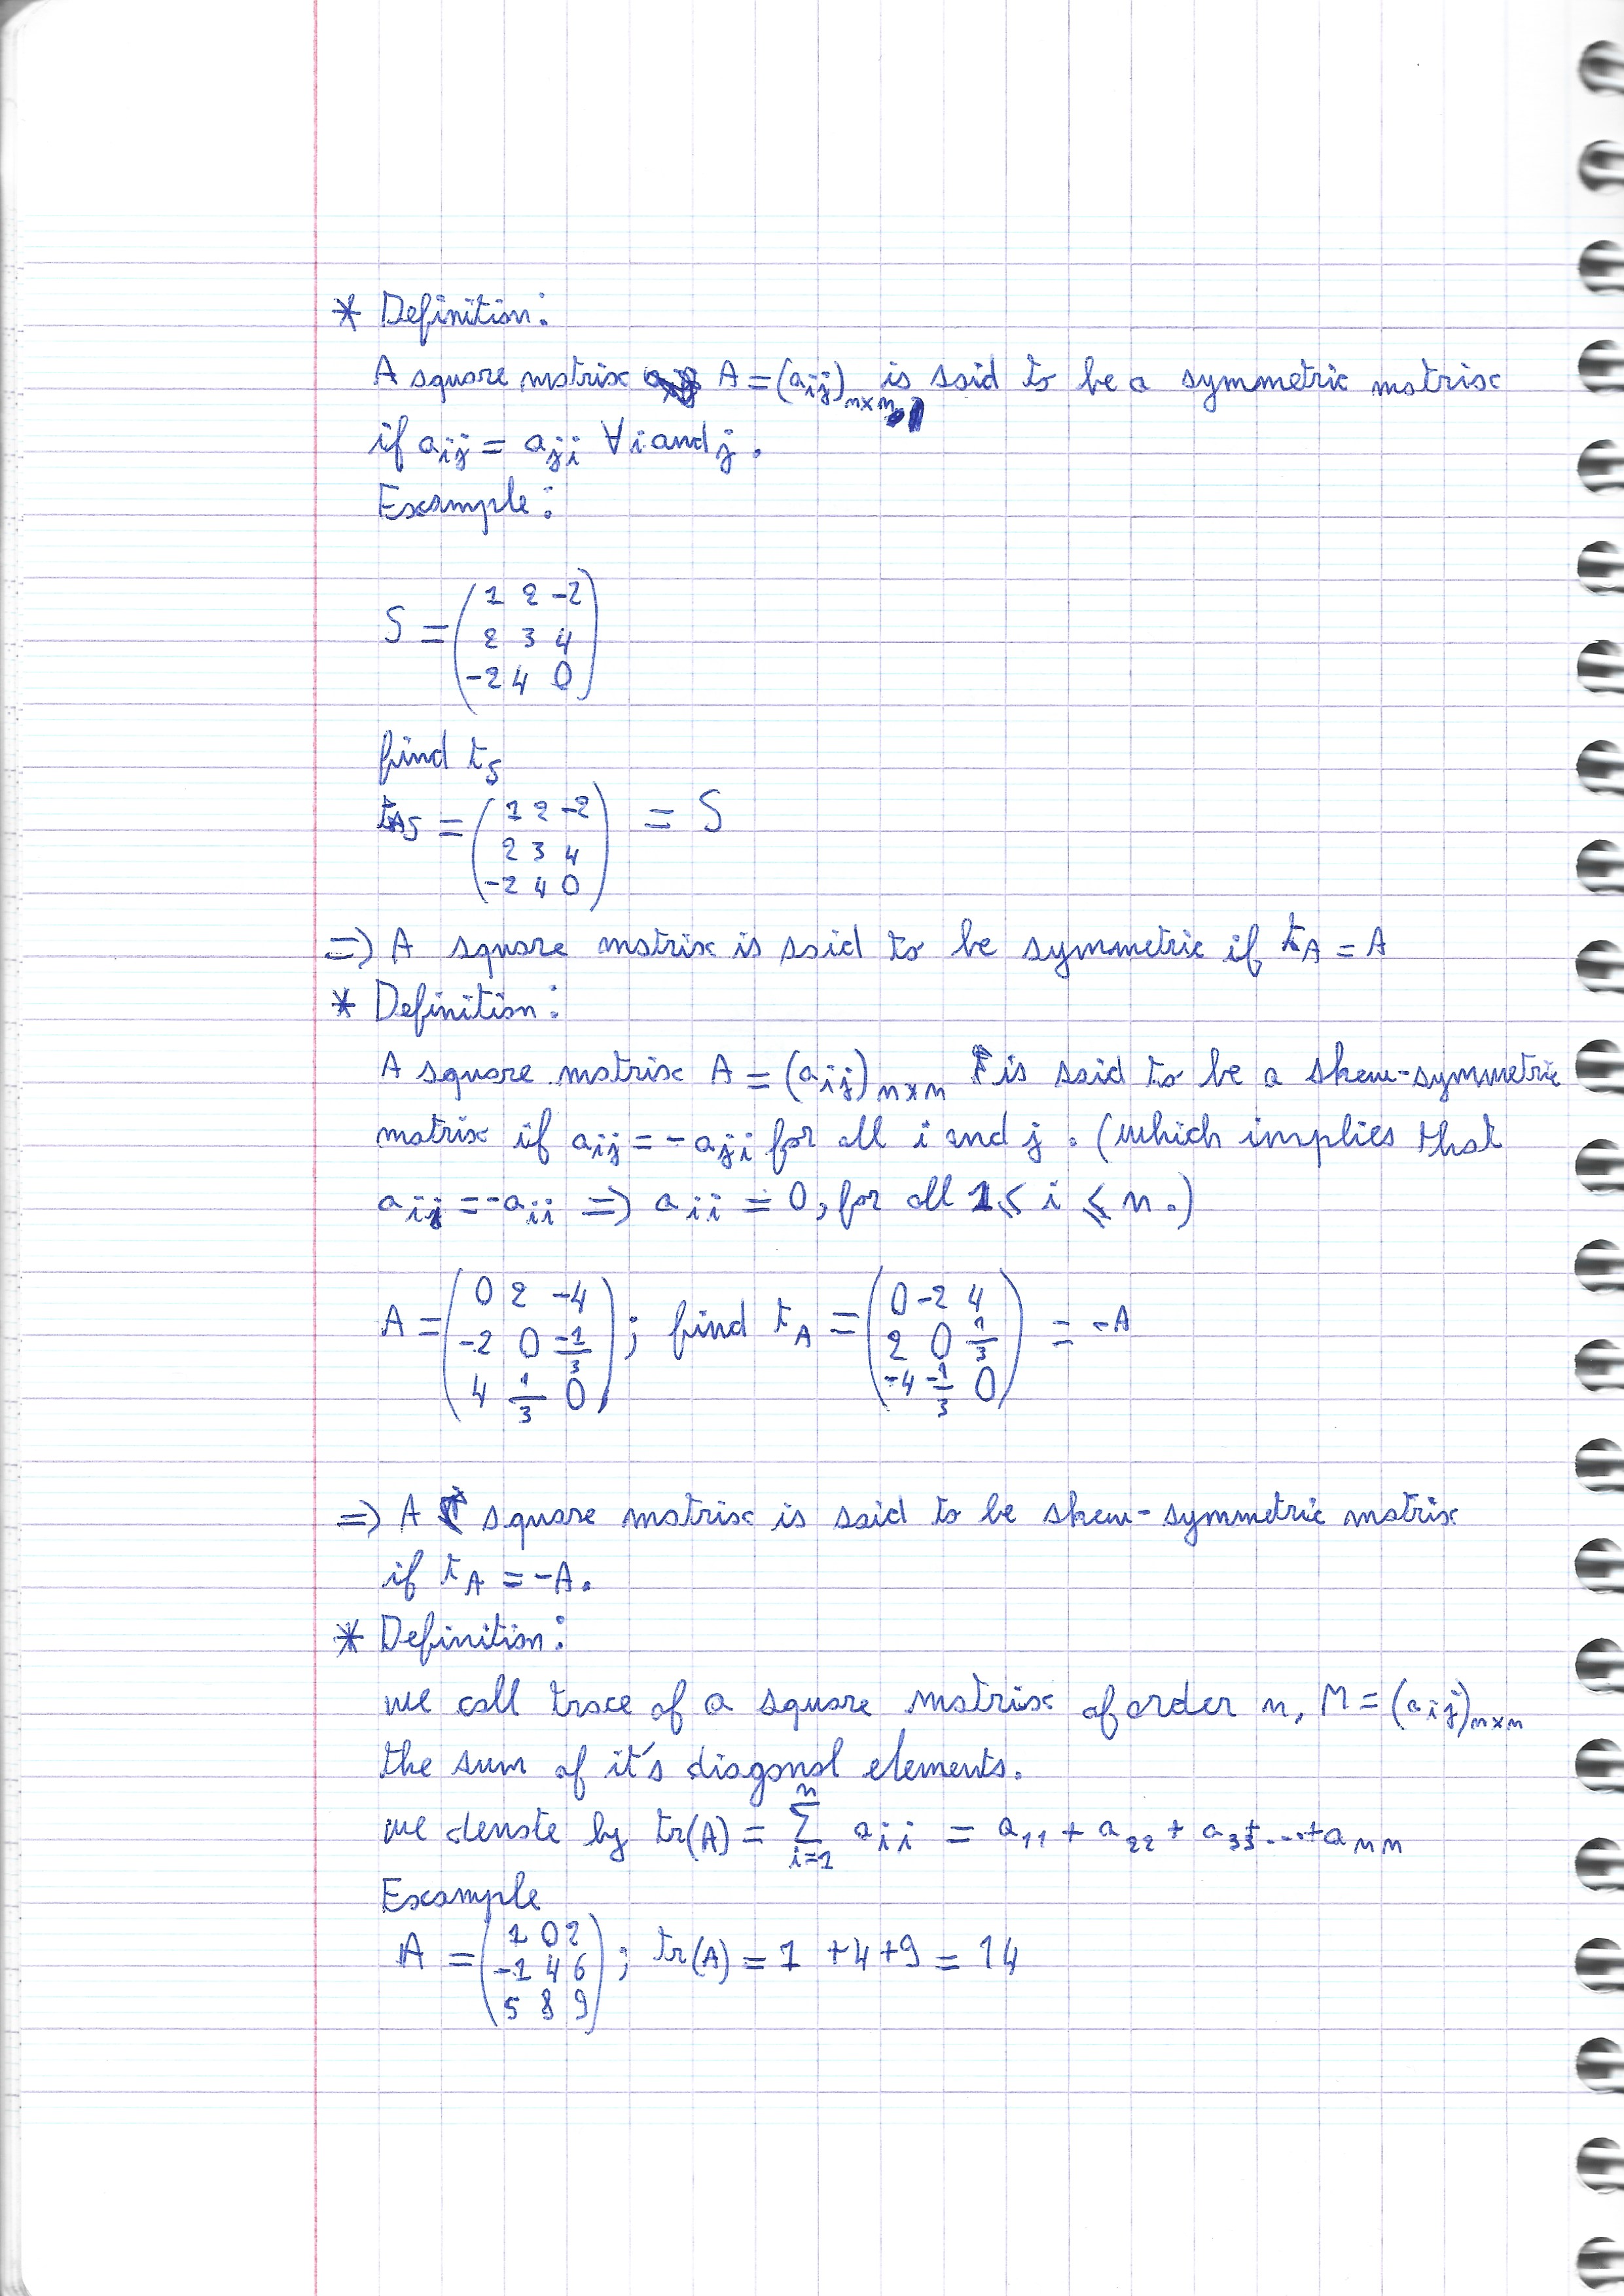 * Definition:
A square matrix A = (aij)n×n is said to be a symmetric matrix
if aij = aji ∀ i and j.
Example:
S = ( 1 2 -2
2 3 4
-2 4 0 )
find tS
tS = ( 1 2 -2
2 3 4
-2 4 0 ) = S
=) A square matrix is said to be symmetric if tA = A
* Definition:
A square matrix A = (aij)n×n is said to be a skew-symmetric
matrix if aij = -aji for all i and j. (which implies that
aij = -aii =) aii = 0, for all 1 ≤ i ≤ n.)
A = ( 0 2 -4
-2 0 -1/3
4 1/3 0 ) ; find tA = ( 0 -2 4
2 0 1/3
-4 -1/3 0 ) = -A
=) A square matrix is said to be skew-symmetric matrix
if tA = -A.
* Definition:
we call trace of a square matrix of order n, M = (aij)n×n
the sum of it's diagonal elements.
we denote by tr(A) = ∑ i=1 n aii = a11 + a22 + a33 + ... + ann
Example
A = ( 1 0 2
-1 4 6
5 8 9 ) ; tr(A) = 1 + 4 + 9 = 14